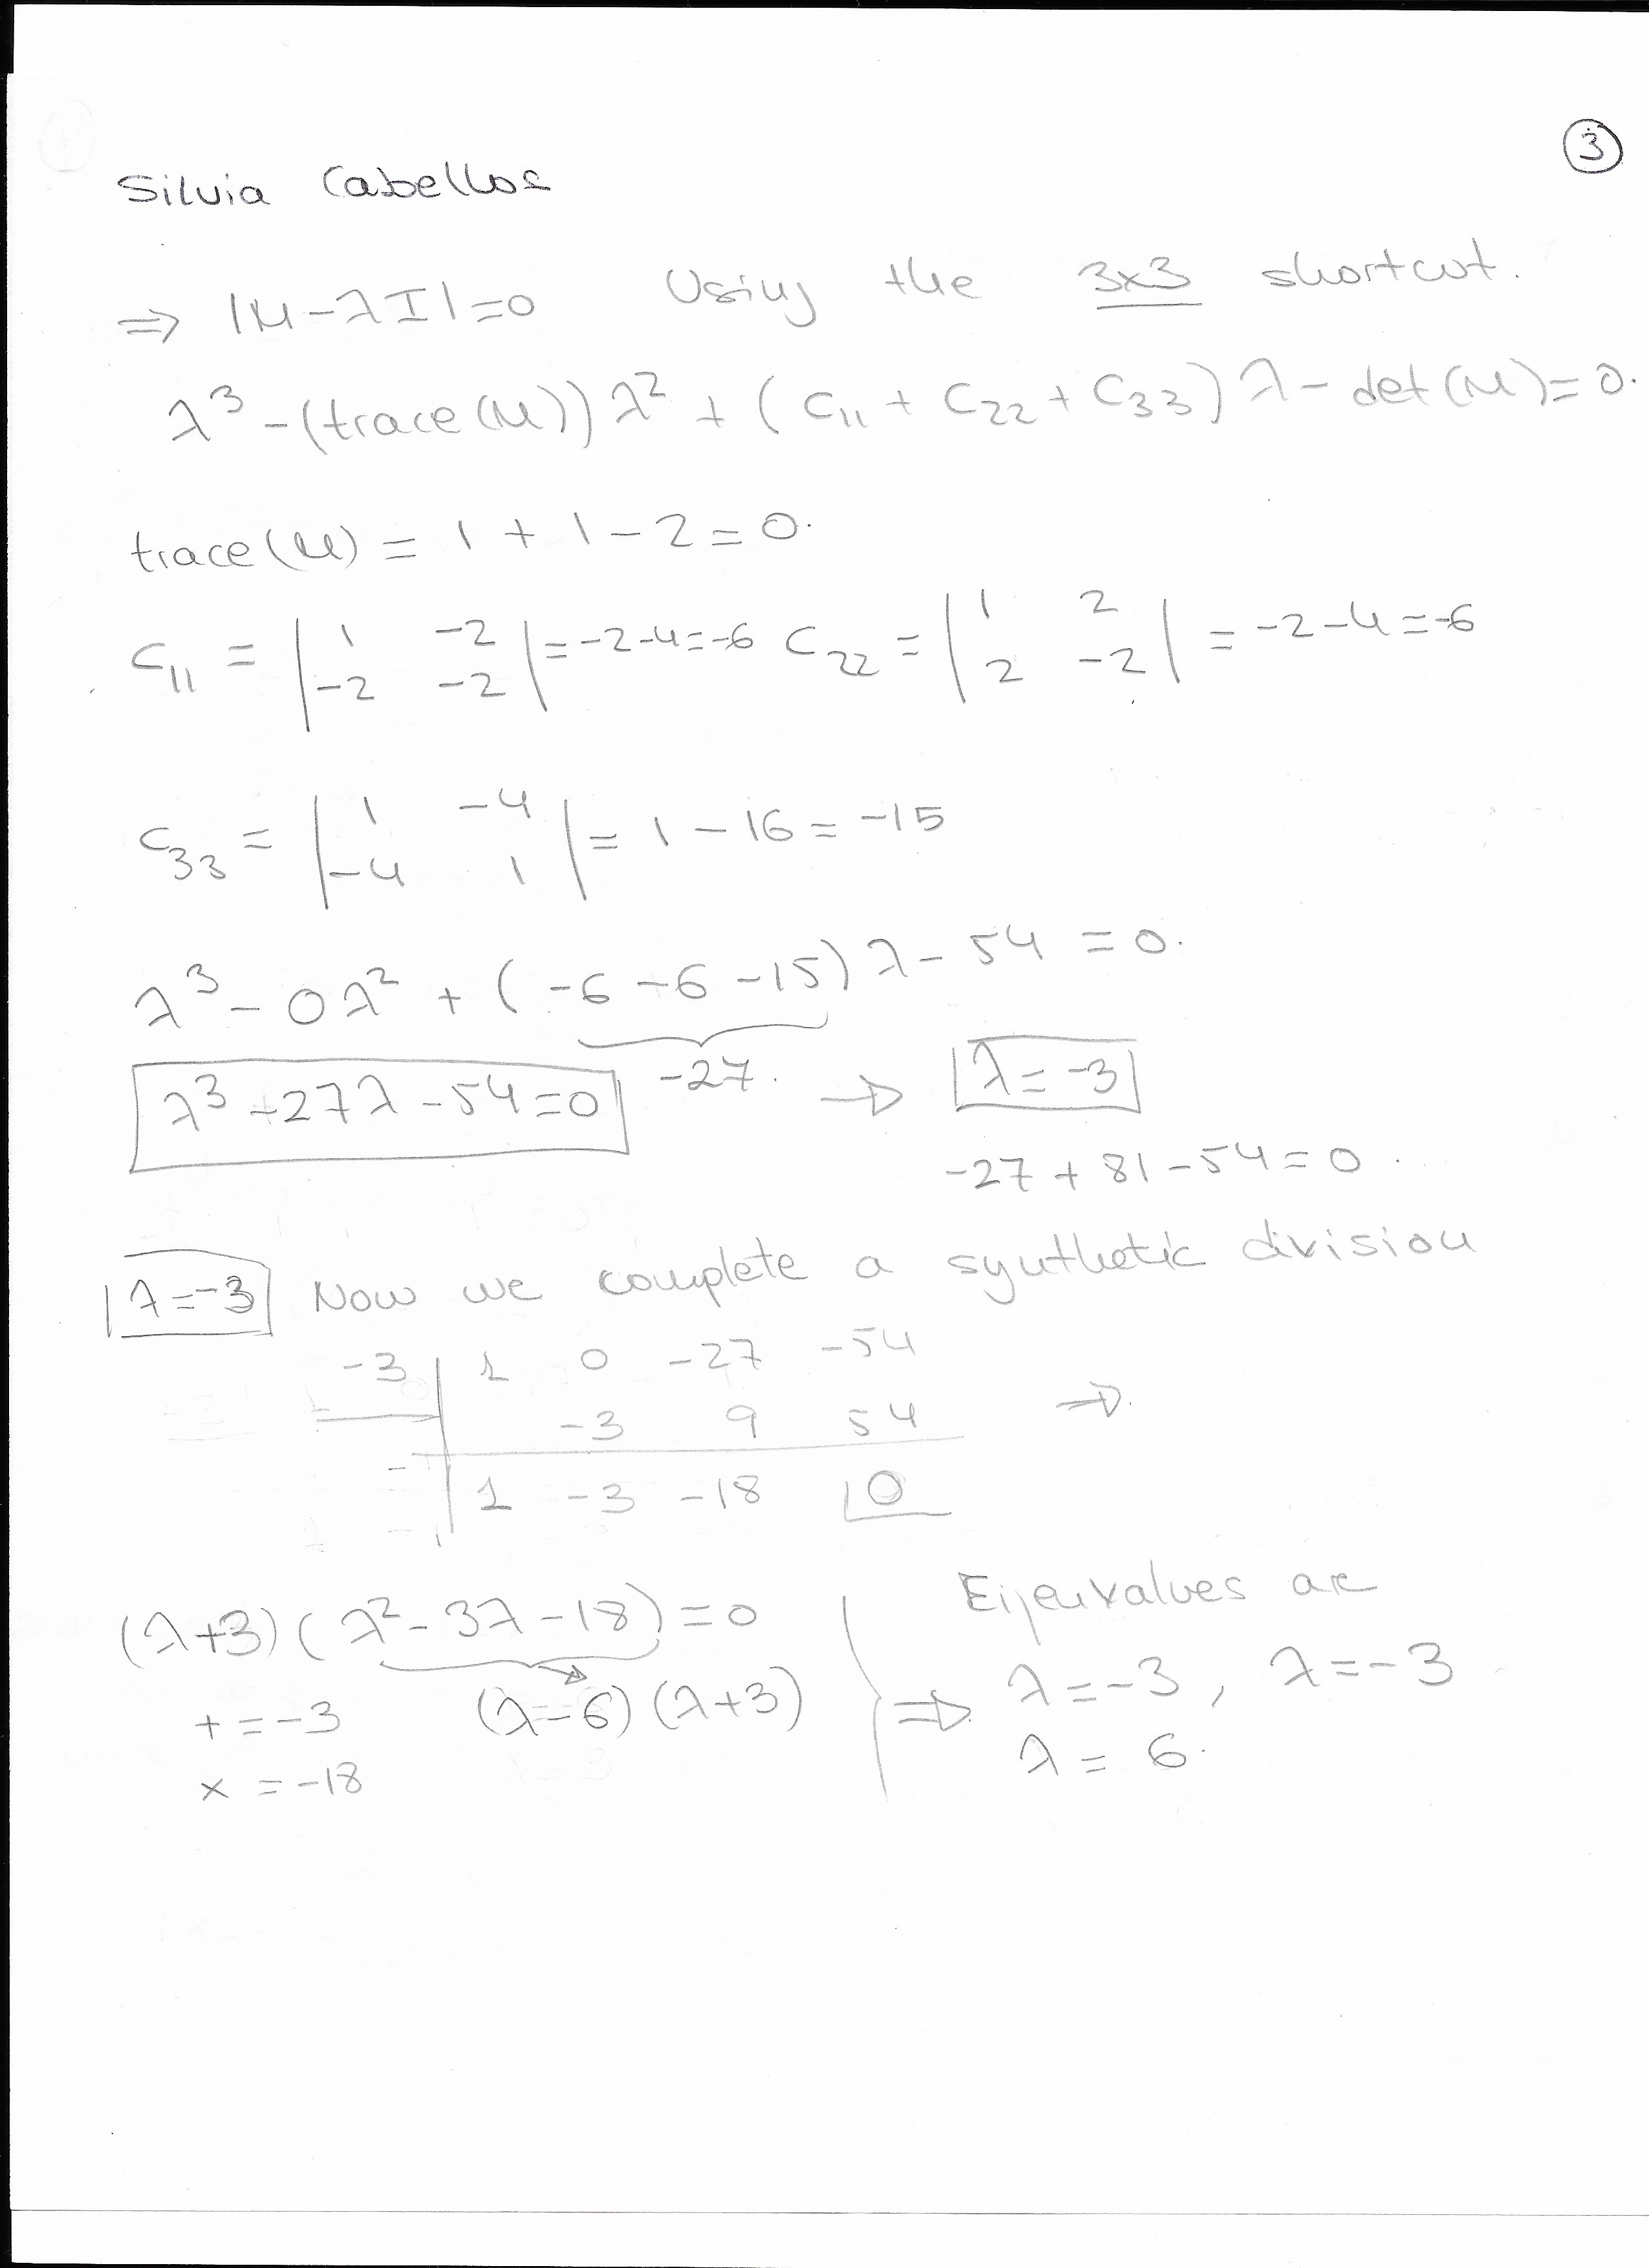 ③
Silvia Cabellos
⇒ |M-λI|=0 Using the 3x3 shortcut.
λ³ -(trace(M))λ² + (C₁₁ + C₂₂ + C₃₃)λ - det(M)=0.
trace(M) = 1 + 1 - 2 = 0.
C₁₁ = | 1 -2 | = -2-4=-6 C₂₂ = | 1 2 | = -2-4=-6
| -2 -2 | | 2 -2 |
C₃₃ = | 1 -4 | = 1 - 16 = -15
| -4 1 |
λ³ - 0λ² + (-6 -6 -15)λ - 54 = 0.
λ³ -27λ -54=0 -27. → λ= -3
-27 + 81 -54 = 0.
λ=-3 Now we complete a synthetic division
-3 | 1 0 -27 -54
-3 9 54 ⇒
1 -3 -18 |0
(λ+3)(λ²-3λ-18)=0
+ = -3 (λ-6)(λ+3)
x = -18
⇒ Eigenvalues are
λ=-3, λ=-3
λ = 6.